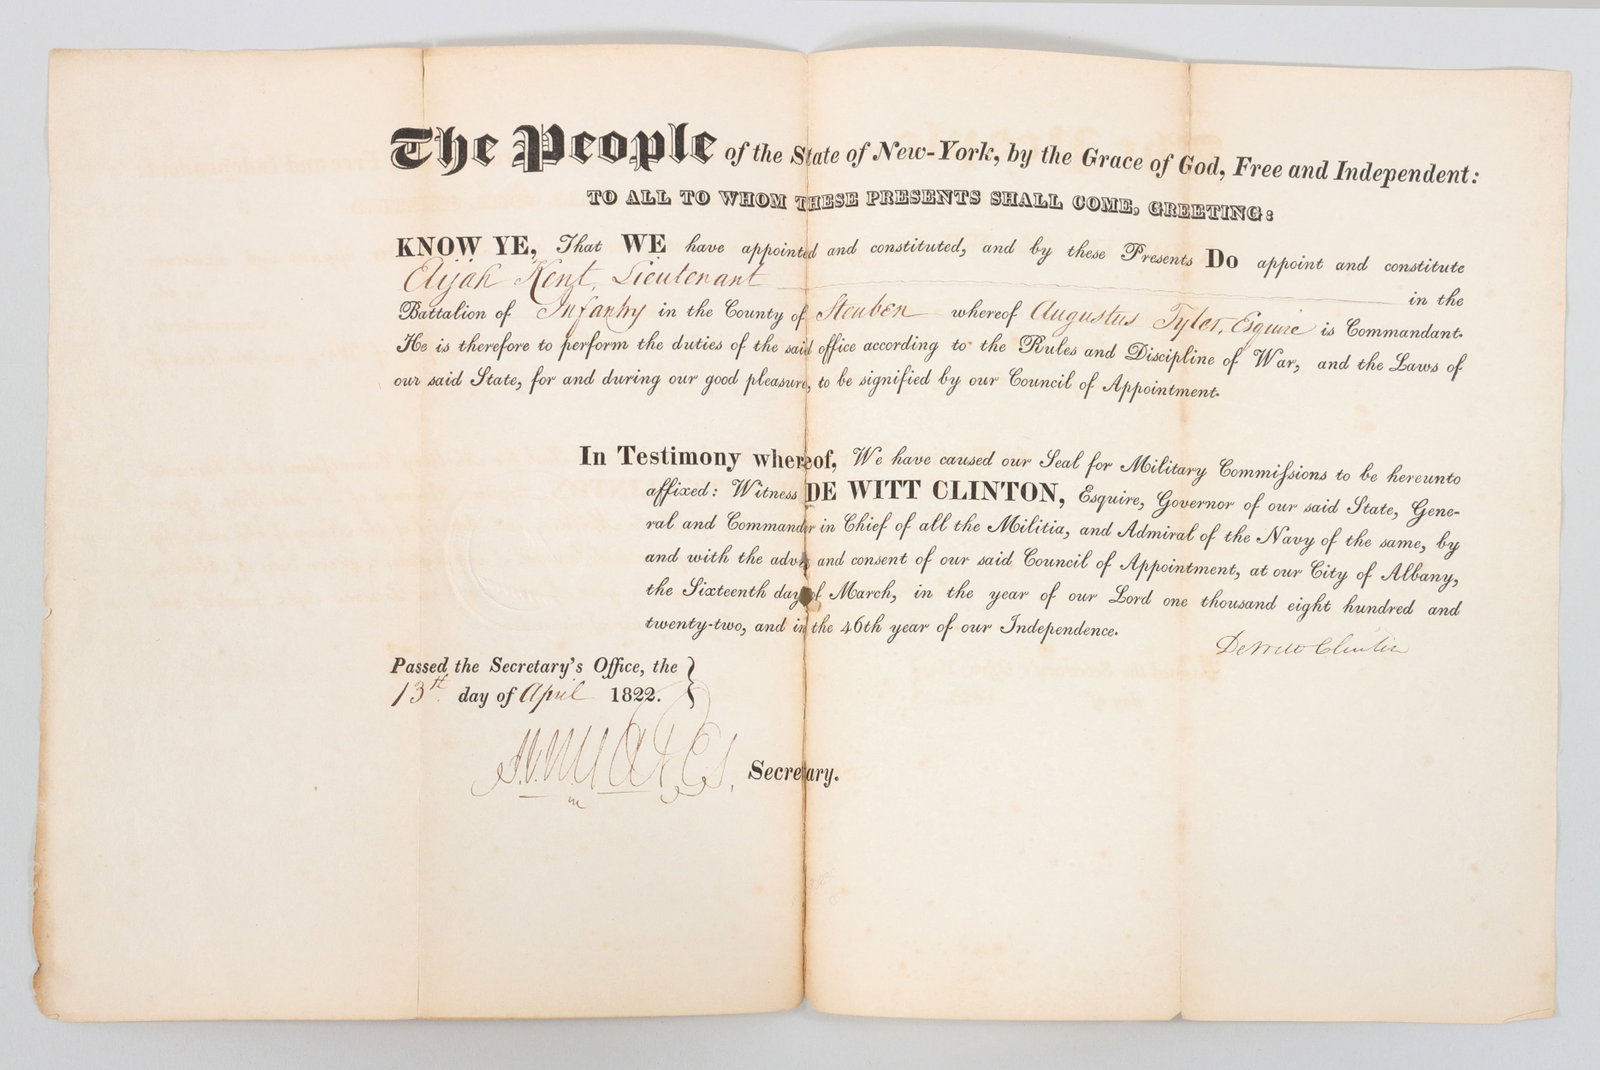 The People of the State of New-York, by the Grace of God, Free and Independent:
TO ALL TO WHOM THESE PRESENTS SHALL COME, GREETING:
KNOW YE, That WE have appointed and constituted, and by these Presents Do appoint and constitute
Elijah Kent, Lieutenant in the
Battalion of Infantry in the County of Steuben whereof Augustus Tyler, Esquire is Commandant.
He is therefore to perform the duties of the said office according to the Rules and Discipline of War, and the Laws of
our said State, for and during our good pleasure, to be signified by our Council of Appointment.
In Testimony whereof, We have caused our Seal for Military Commissions to be hereunto
affixed: Witness DE WITT CLINTON, Esquire, Governor of our said State, Gene-
ral and Commander in Chief of all the Militia, and Admiral of the Navy of the same, by
and with the advice and consent of our said Council of Appointment, at our City of Albany,
the Sixteenth day of March, in the year of our Lord one thousand eight hundred and
twenty-two, and in the 46th year of our Independence.
DeWitt Clinton
Passed the Secretary's Office, the
13th day of April 1822.
Secretary.